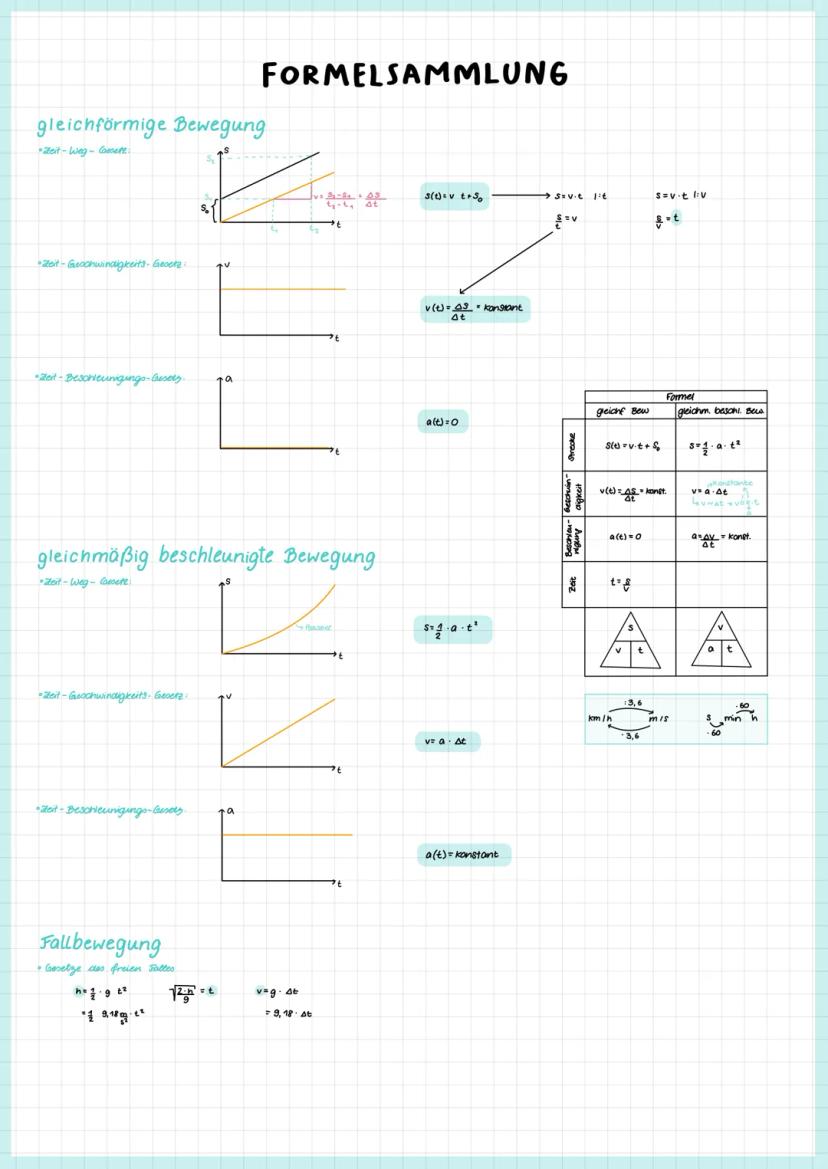 FORMELSAMMLUNG
gleichförmige Bewegung
•Zeit-Weg-Gesetz:
s
S₂
S₁
S₀
t₁
t₂
t
v = s₂-s₁/t₂-t₁ = Δs/Δt
s(t)=v t+S₀
s=v·t |:t
s/t=v
s=v·t |:v
s/v=t
•Zeit-Geschwindigkeits-Gesetz:
v
t
v(t)=Δs/Δt = konstant
•Zeit-Beschleunigungs-Gesetz:
a
t
a(t)=0
Formel
gleichf Bew
gleichm. beschl. Bew.
Strecke
S(t)=v·t+S₀
s=1/2·a·t²
Geschwin-
digkeit
v(t)=Δs/Δt=konst.
v=a·Δt
konstante
Beschleu-
nigung
a(t)=0
a=Δv/Δt = konst.
Zeit
t=s/v
s
v t
v
a t
:3,6
km/h m/s
·3,6
·60
s min h
·60
gleichmäßig beschleunigte Bewegung
•Zeit-Weg-Gesetz:
s
t
s=1/2·a·t²
•Zeit-Geschwindigkeits-Gesetz:
v
t
v=a·Δt
•Zeit-Beschleunigungs-Gesetz:
a
t
a(t)=konstant
Fallbewegung
•Gesetze des freien Falles
h=1/2·g t²
√2·h/g = t
v=g·Δt
=1/2 9,18 m/s²·t²
=9,18·Δt